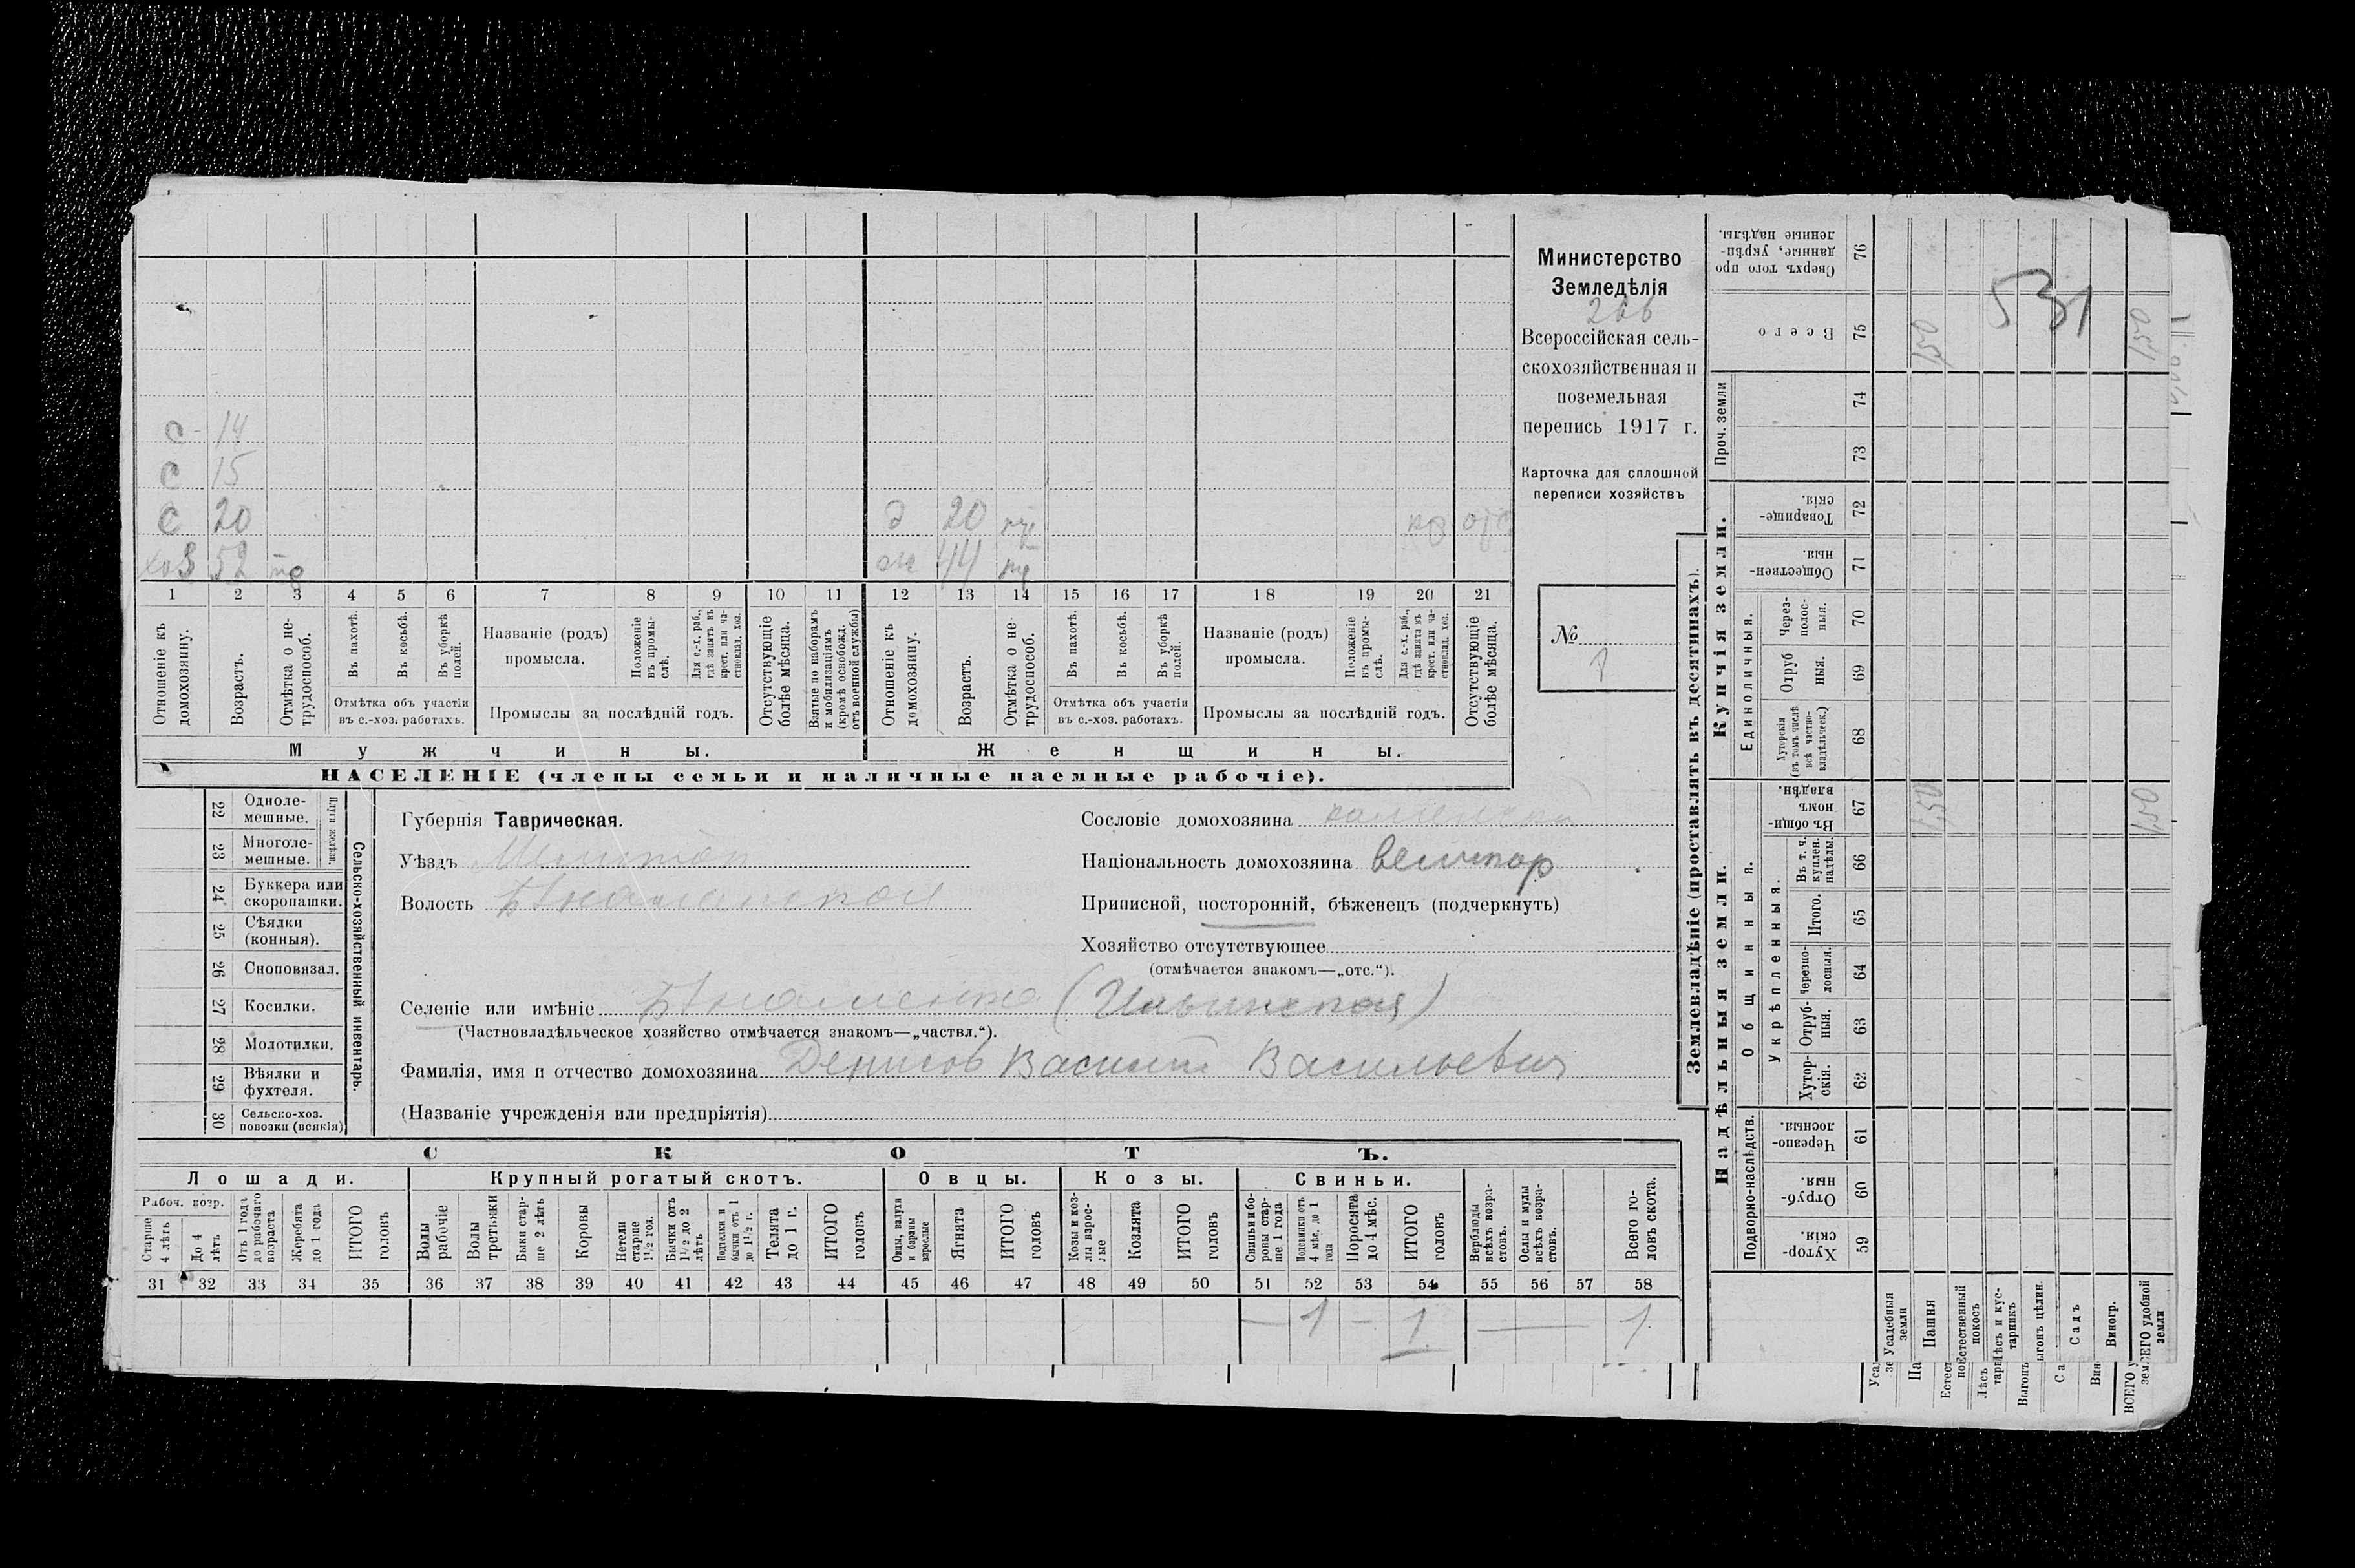 С 14
С 15
С 20
д 20
хоз 52
ж 44
1 2 3 4 5 6 7 8 9 10 11 12 13 14 15 16 17 18 19 20 21
Отношеніе къ домохозяину.
Возрастъ.
Отмѣтка о не-трудоспособ.
Въ пахотѣ.
Въ косьбѣ.
Въ уборкѣ полей.
Отмѣтка объ участіи
въ с.-хоз. работахъ.
Названіе (родъ)
промысла.
Положеніе въ промы-слѣ.
Для с.-х. раб., гдѣ занятъ въ крест. или ча-стновлад. хоз.
Промыслы за послѣдній годъ.
Отсутствующіе болѣе мѣсяца.
Взятые по наборамъ и мобилизаціямъ (кромѣ освобожд. отъ военной службы)
Отношеніе къ домохозяину.
Возрастъ.
Отмѣтка о не-трудоспособ.
Въ пахотѣ.
Въ косьбѣ.
Въ уборкѣ полей.
Отмѣтка объ участіи
въ с.-хоз. работахъ.
Названіе (родъ)
промысла.
Положеніе въ промы-слѣ.
Для с.-х. раб., гдѣ занята въ крест. или ча-стновлад. хоз.
Промыслы за послѣдній годъ.
Отсутствующіе болѣе мѣсяца.
Мужчины.
Женщины.
НАСЕЛЕНІЕ (члены семьи и наличные наемные рабочіе).
Министерство
Земледѣлія
266
Всероссійская сель-
скохозяйственная и
поземельная
перепись 1917 г.
Карточка для сплошной
переписи хозяйствъ
№
1
22 Одноле-мешные.
23 Многоле-мешные.
Плуги желѣзн.
24 Буккера или скоропашки.
25 Сѣялки (конныя).
26 Сноповязал.
27 Косилки.
28 Молотилки.
29 Вѣялки и фухтеля.
30 Сельско-хоз. повозки (всякія)
Сельско-хозяйственный инвентарь.
Губернія Таврическая.
Уѣздъ Мелитоп
Волость
Сословіе домохозяина
Національность домохозяина великор
Приписной, посторонній, бѣженецъ (подчеркнуть)
Хозяйство отсутствующее
(отмѣчается знакомъ—„отс.“).
Селеніе или имѣніе Знаменка (Ильинская)
(Частновладѣльческое хозяйство отмѣчается знакомъ—„частвл.“).
Фамилія, имя и отчество домохозяина Денисов Василій Васильевич
(Названіе учрежденія или предпріятія)
СКОТЪ.
Лошади.
Крупный рогатый скотъ.
Овцы.
Козы.
Свиньи.
Рабоч. возр.
Старше 4 лѣтъ
До 4 лѣтъ
Отъ 1 года до рабочаго возраста
Жеребята до 1 года
ИТОГО головъ
Волы рабочіе
Волы третьяки
Быки стар-ше 2 лѣтъ
Коровы
Нетели старше 1½ год.
Бычки отъ 1½ до 2 лѣтъ
Подтелки и бычки отъ 1 до 1½ г.
Телята до 1 г.
ИТОГО головъ
Овцы, валухи и бараны взрослые
Ягнята
ИТОГО головъ
Козы и коз-лы взрос-лые
Козлята
ИТОГО головъ
Свиньи и бо-ровы стар-ше 1 года
Подсвинки отъ 4 мѣс. до 1 года
Поросята до 4 мѣс.
ИТОГО головъ
Верблюды всѣхъ возра-стовъ.
Ослы и мулы всѣхъ возра-стовъ.
Всего го-ловъ скота.
31 32 33 34 35 36 37 38 39 40 41 42 43 44 45 46 47 48 49 50 51 52 53 54 55 56 57 58
— 1 — 1 — 1
Землевладѣніе (проставлять въ десятинахъ).
Надѣльныя земли.
Купчія земли.
Проч. земли
Подворно-наслѣдств.
Общинныя.
Укрѣпленныя.
Единоличныя.
Сверхъ того про-данные, укрѣп-ленные надѣлы. 76
Всего 75
74
73
Товарище-скія. 72
Обществен-ныя. 71
Через-полос-ныя. 70
Отруб ныя. 69
Хуторскія (въ томъ числѣ всѣ частно-владѣльческ.) 68
Въ общи-номъ владѣн. 67
Въ т. ч. куплен. надѣлы. 66
Итого. 65
Черезпо-лосныя. 64
Отруб-ныя. 63
Хутор-скія. 62
Черезпо-лосныя. 61
Отруб-ныя. 60
Хутор-скія. 59
531
150
150
150
150
Усадебныя земли
Пашня
Естественный покосъ
Лѣсъ и кус-тарникъ
Выгонъ цѣлин.
Садъ
Виногр.
ВСЕГО удобной земли